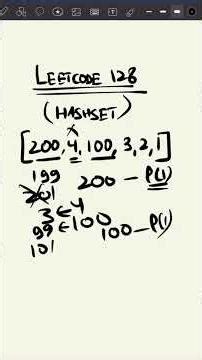 LEETCODE 128
(HASHSET)
[200, 4, 100, 3, 2, 1]
199 200 – P(1)
201
3 ← 4
99 ← 100 100 – P(1)
101